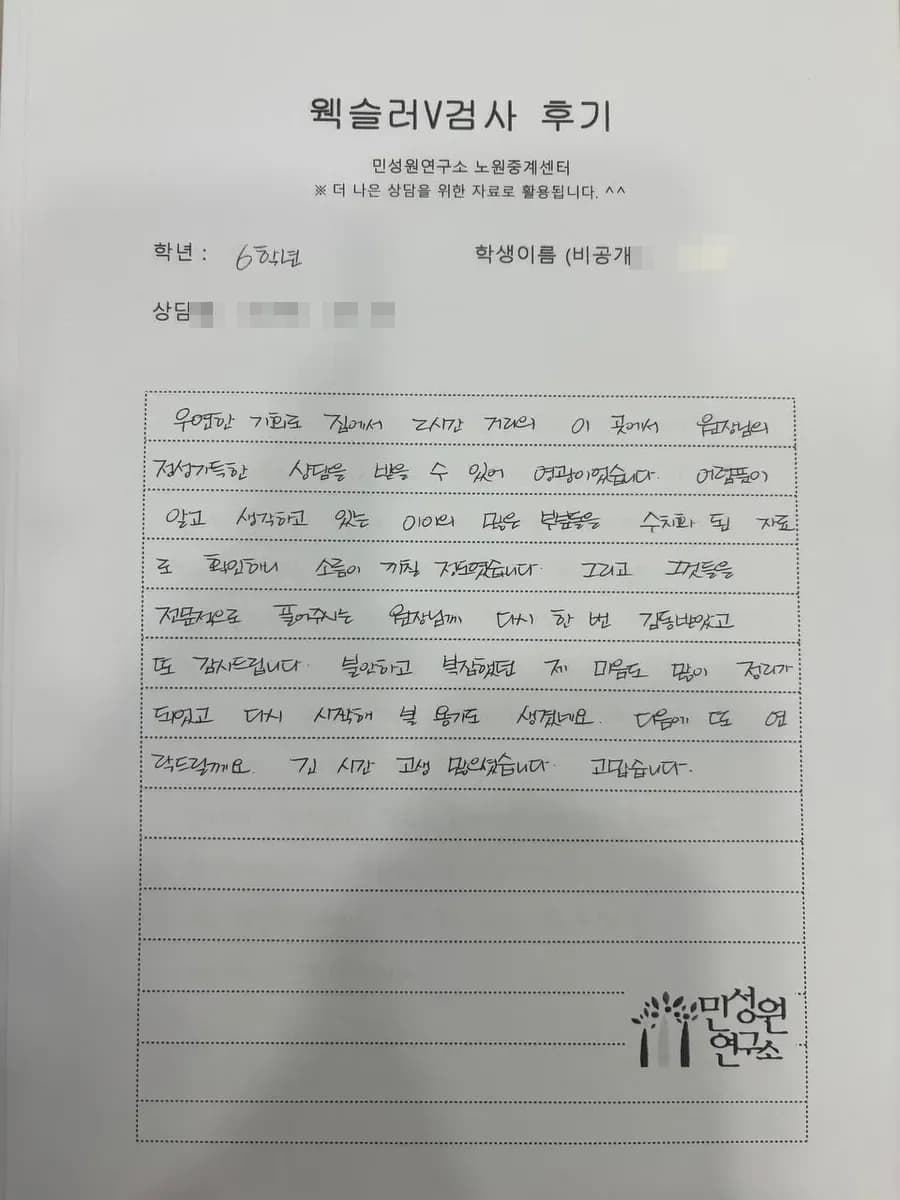 웩슬러V검사 후기
민성원연구소 노원중계센터
※ 더 나은 상담을 위한 자료로 활용됩니다. ^^
학년 : 6학년 학생이름 (비공개
상담
우연한 기회로 집에서 2시간 거리의 이 곳에서 원장님의
정성가득한 상담을 받을 수 있어 영광이었습니다. 어렴풋이
알고 생각하고 있는 아이의 많은 부분들을 수치화 된 자료
로 확인하니 소름이 끼칠 정도였습니다. 그리고 그것들을
전문적으로 풀어주시는 원장님께 다시 한 번 감동받았고
또 감사드립니다. 불안하고 복잡했던 제 마음도 많이 정리가
되었고 다시 시작해 볼 용기도 생겼네요. 다음에 또 연
락드릴께요. 긴 시간 고생 많으셨습니다. 고맙습니다.
민성원
연구소